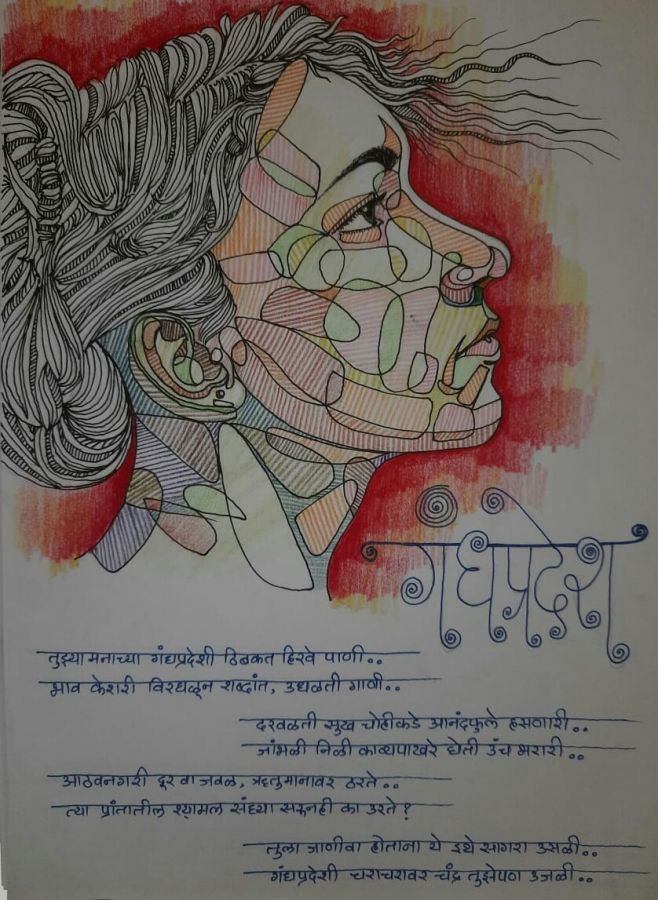 गंधप्रदेश
तुझ्या मनाच्या गंधप्रदेशी ठिबकत हिरवे पाणी..
भाव केशरी विरघळून शब्दांत, उधळती गाणी..
दरवळती सुख चोहीकडे आनंदफुले हसणारी..
जांभळी निळी काव्यपाखरे घेती उंच भरारी..
आठवनगरी दूर वा जवळ, ऋतुमानावर ठरते..
त्या प्रांतातील श्यामल संध्या सरूनही का उरते?
तुला जाणीवा होताना ये इथे सागरा उसळी..
गंधप्रदेशी चराचरावर चंद्र तुझेपण उजळी..